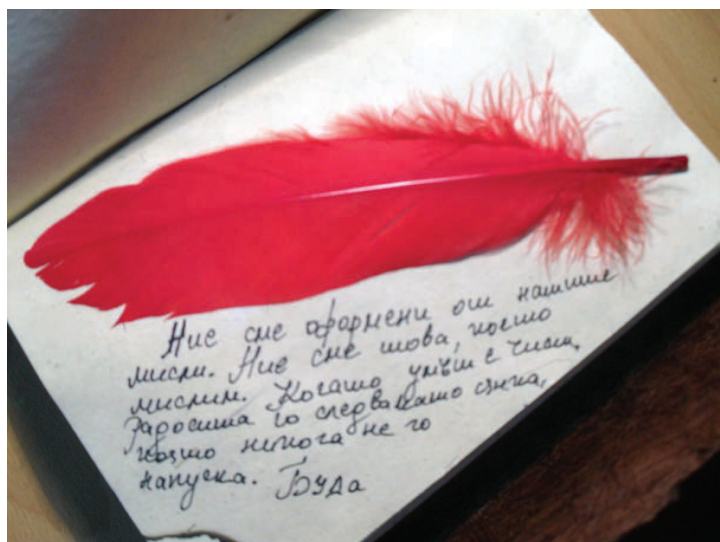 Ние сме оформени от нашите
мисли. Ние сме това, което
мислим. Когато умът е чист,
радостта го следва като сянка,
която никога не го
напуска. Буда